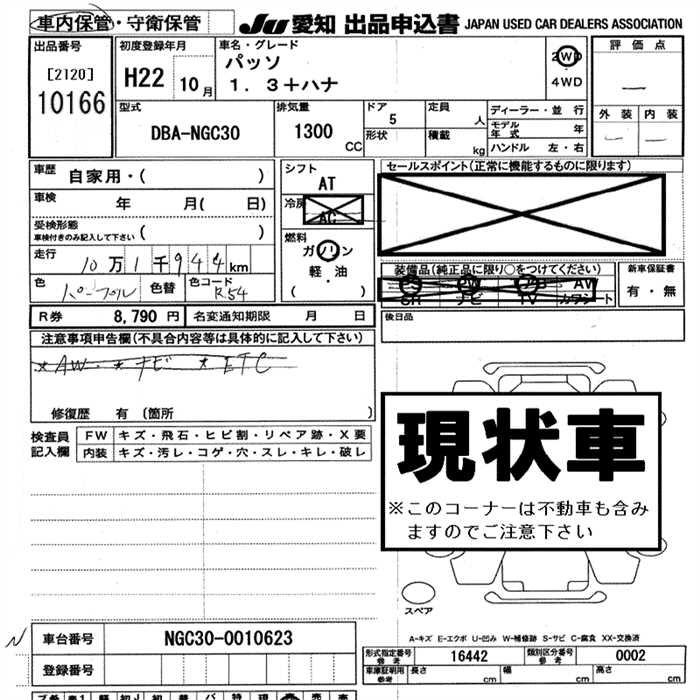 車内保管・守衛保管
JU 愛知 出品申込書 JAPAN USED CAR DEALERS ASSOCIATION
出品番号
[2120]
10166
初度登録年月
H22 10月
車名・グレード
パッソ
1.3+ハナ
2WD
4WD
評価点
―
外装 内装
― ―
型式
DBA-NGC30
排気量
1300 CC
ドア 5
形状
定員 人
積載 kg
ディーラー・並行
モデル年式 年
ハンドル 左・右
車歴 自家用・( )
車検 年 月( 日)
受検形態
車検付きのみ記入して下さい ( )
走行 10万1千944km
色 パープル 色替 色コード R54
シフト
AT
冷房
AC
燃料
ガソリン
軽・油
( )
セールスポイント(正常に機能するものに限ります)
装備品(純正品に限り○をつけてください)
SR ナビ TV カワシート
AV
新車保証書
有・無
R券 8,790円 名変通知期限 月 日
後日品
注意事項申告欄(不具合内容等は具体的に記入して下さい)
*AW *ナビ *ETC
修復歴 有 (箇所 )
検査員記入欄
FW キズ・飛石・ヒビ割・リペア跡・X要
内装 キズ・汚レ・コゲ・穴・スレ・キレ・破レ
現状車
※このコーナーは不動車も含み
ますのでご注意下さい
スペア
A-キズ E-エクボ U-凹み W-補修跡 S-サビ C-腐食 XX-交換済
N 車台番号 NGC30-0010623
登録番号
形式指定番号 参考 16442 類別区分番号 参考 0002
車庫証明用 参考 長さ cm 幅 cm 高さ cm